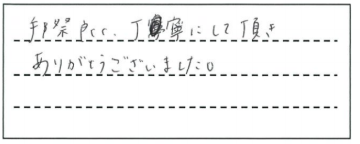 丁寧にして頂き
ありがとうございました。